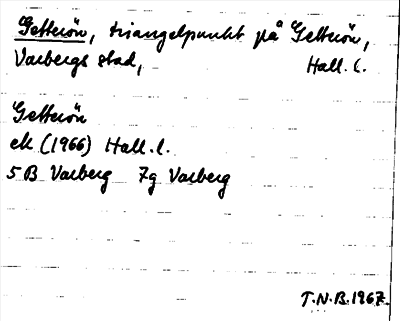 Getterön, triangelpunkt på Getterön,
Varbergs stad, Hall. l.
Getterön
ek (1966) Hall. l.
5B Varberg 7g Varberg
T.N.B. 1967.